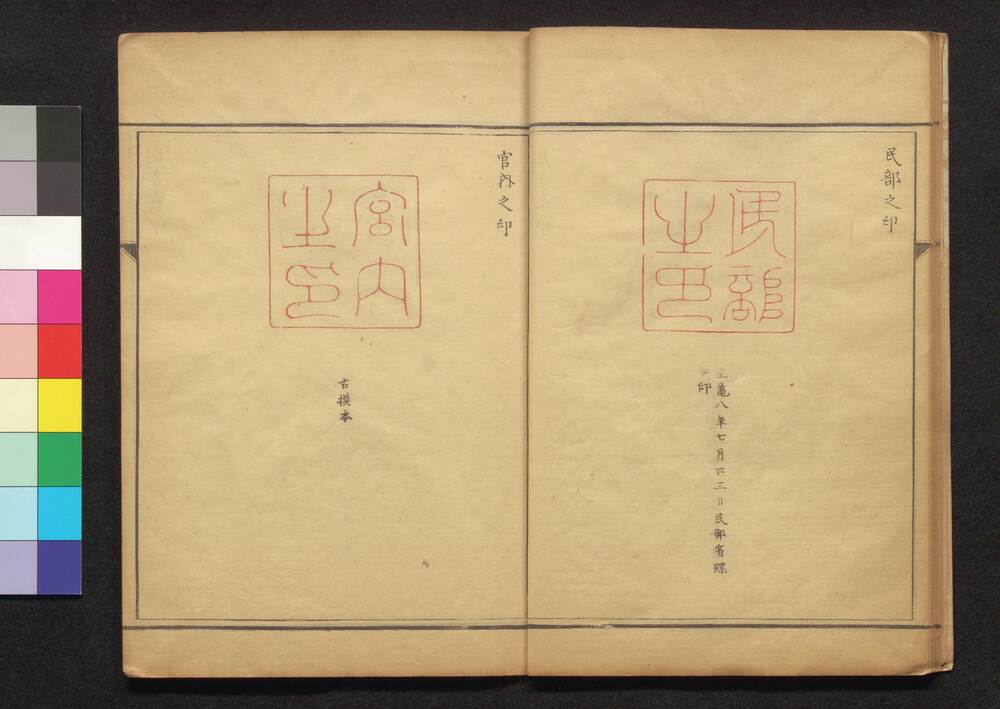 民部之印
民部之印
亀八年七月廿三日民部省牒
印
官内之印
宮内之印
古摸本